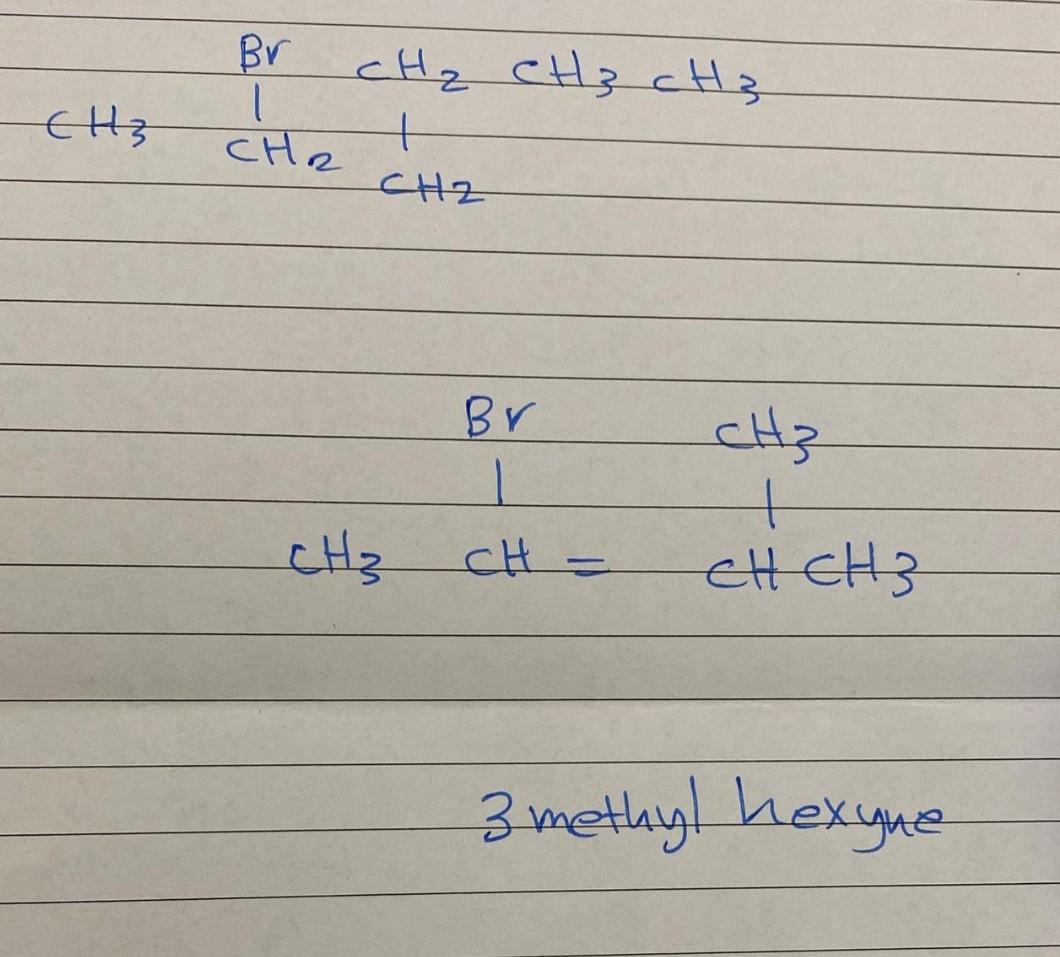 Br CH2 CH3 CH3
|
CH3 CH2 |
CH2
Br CH3
| |
CH3 CH = CH CH3
3 methyl hexyne